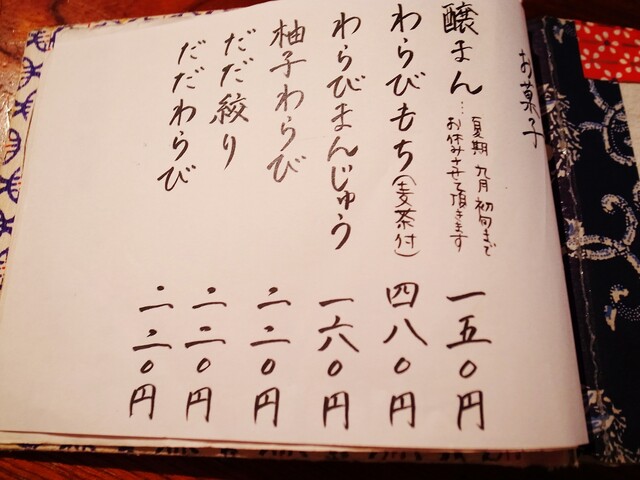 お菓子
醸まん…夏期 九月初旬まで
お休みさせて頂きます
一五〇円
わらびもち(麦茶付)
四八〇円
わらびまんじゅう
一六〇円
柚子わらび
二二〇円
だだ絞り
二二〇円
だだわらび
二二〇円